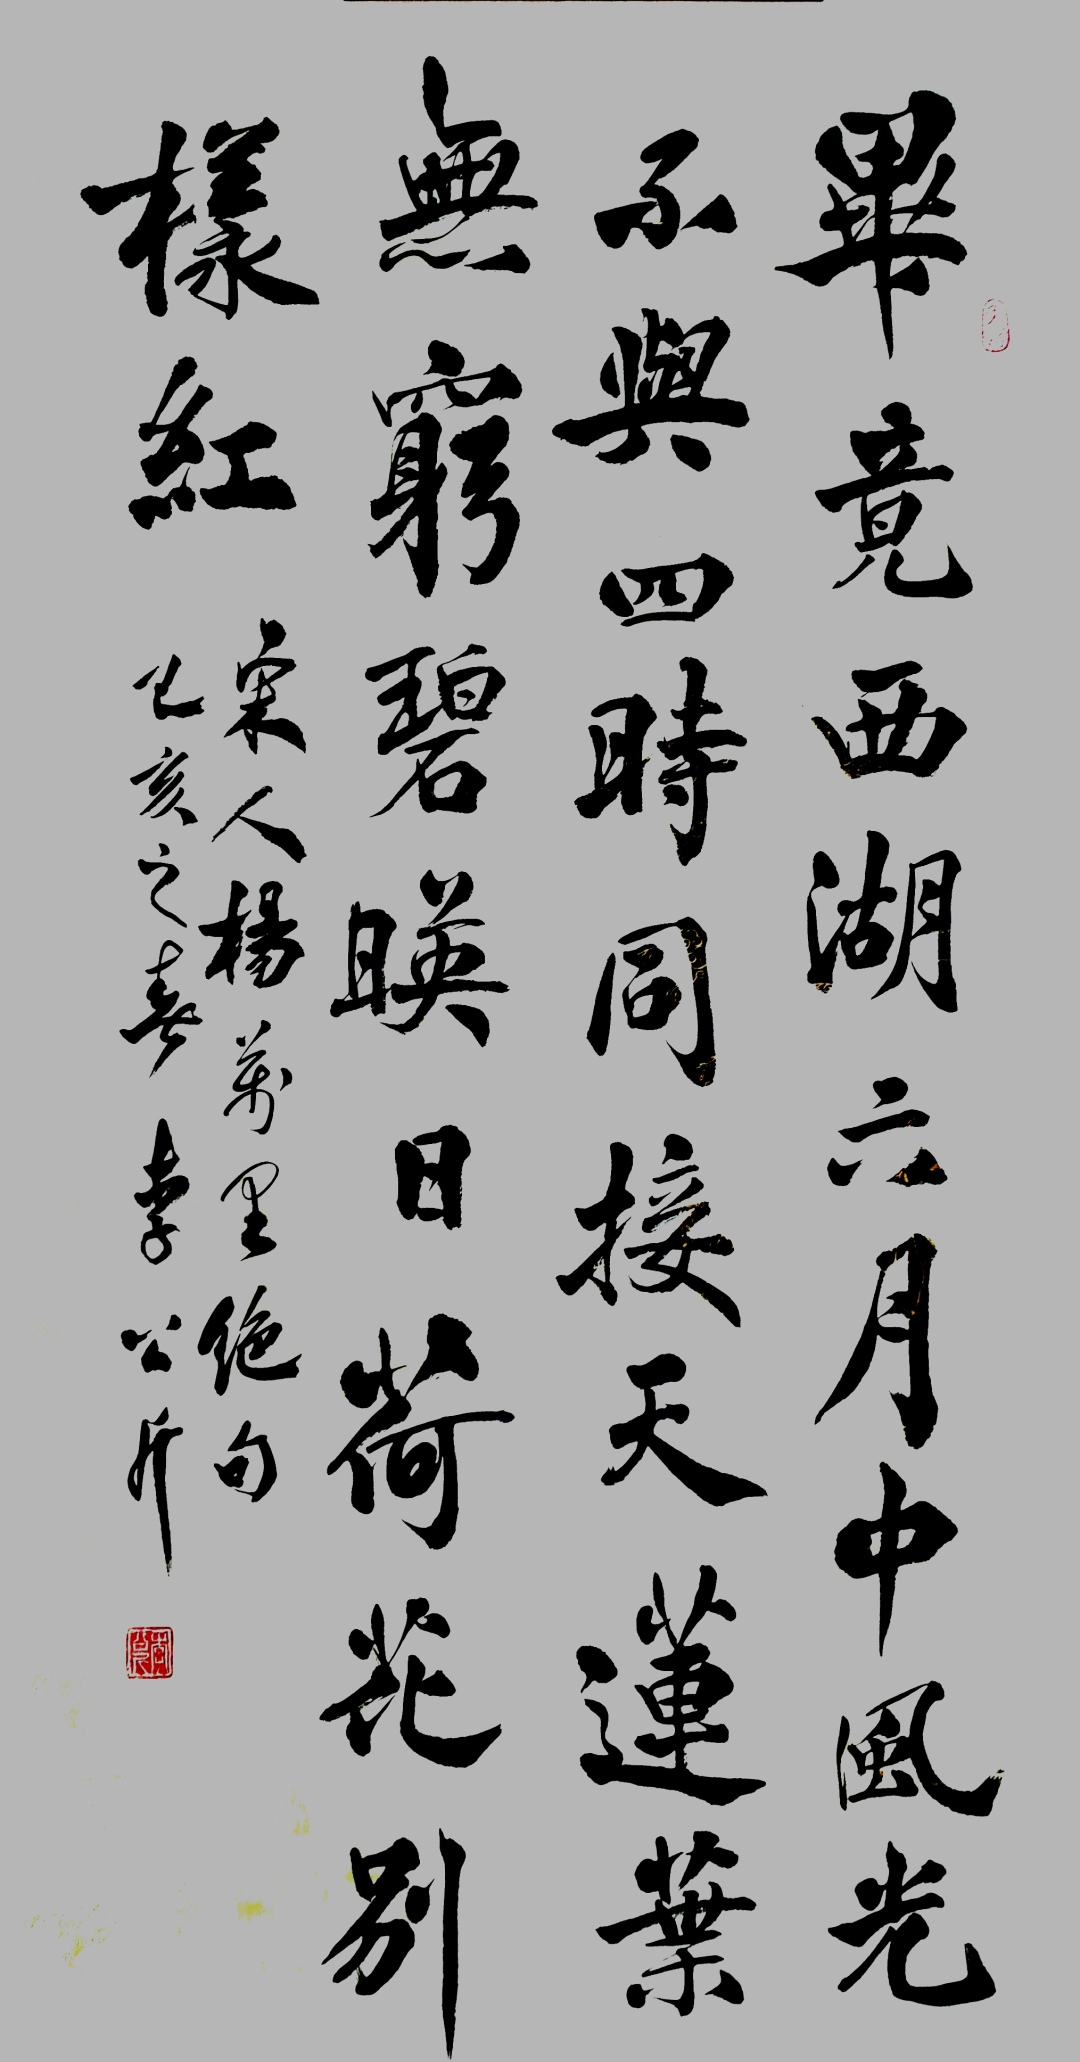 畢竟西湖六月中風光
不與四時同接天蓮葉
無窮碧暎日荷花别
樣紅
宋人楊萬里絶句
己亥之春李公斤